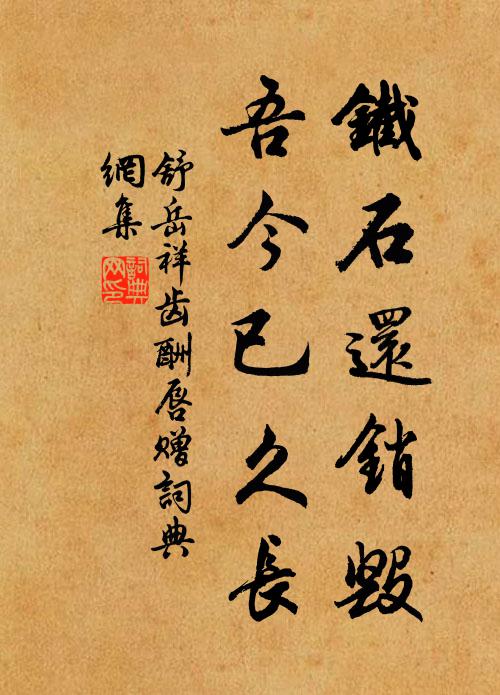 鐵石還銷毀
吾今已久長
舒岳祥齿酬唇赠詞典
網集
詞典
网印